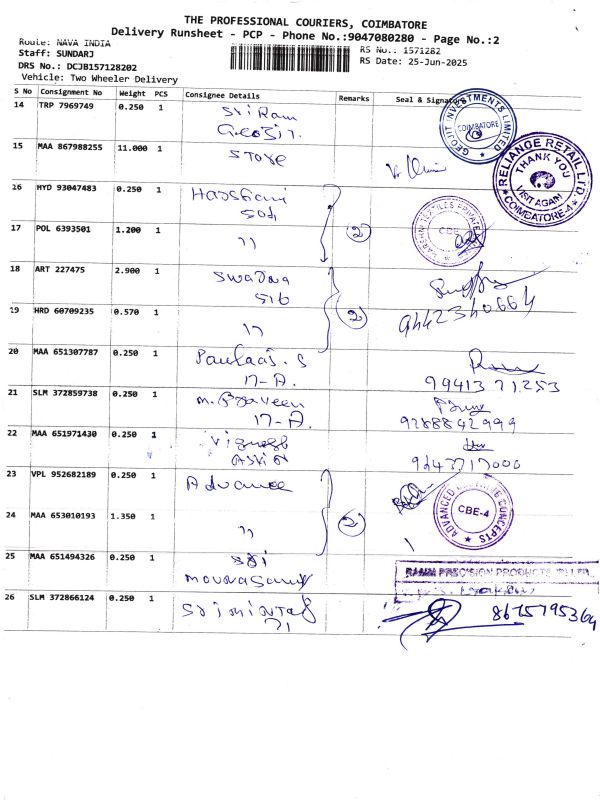 THE PROFESSIONAL COURIERS, COIMBATORE
Delivery Runsheet - PCP - Phone No.:9047080280 - Page No.:2
Route: NAVA INDIA
RS No.: 1571282
Staff: SUNDARJ
RS Date: 25-Jun-2025
DRS No.: DCJB157128202
Vehicle: Two Wheeler Delivery
S No Consignment No Weight PCS Consignee Details Remarks Seal & Signature
14 TRP 7969749 0.250 1 Sri Ram
GEOJIT INVESTMENTS LIMITED
COIMBATORE
15 MAA 867988255 11.000 1 Store
RELIANCE RETAIL LTD.
THANK YOU
VISIT AGAIN
COIMBATORE-4
16 HYD 93047483 0.250 1
17 POL 6393501 1.200 1 11 (2)
CBE
18 ART 227475 2.900 1 Swapna
516
19 HRD 60709235 0.570 1 17 (2) 9442340664
20 MAA 651307787 0.250 1 Paulraj. S
17-A. 9941371253
21 SLM 372859738 0.250 1 M. Praveen
17-A. 9288842999
22 MAA 651971430 0.250 1 Vignesh
23 VPL 952682189 0.250 1 Advance
ADVANCED CONCEPTS
CBE-4
24 MAA 653010193 1.350 1 11 (2)
25 MAA 651494326 0.250 1 Sri
26 SLM 372866124 0.250 1
21 8675795364